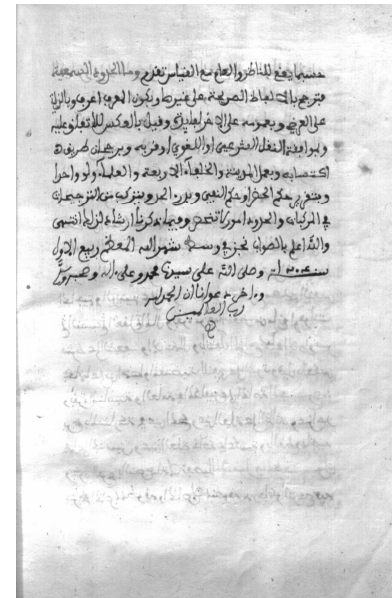 حسبما يقع للناظر والعام مع القياس تقدم وما الحدود السمعية
فترجح بالالفاظ الصريحة على غيرها وبكون المعرف اعرف وبالذاتي
على العرضي وبعمومه على الاخر لفائدته وقيل بالعكس للاتفاق عليه
وبموافقة النقل الشرعي او اللغوي او قربه وبرجحان طريق
اكتسابه وبعمل المدينة والخلفاء الاربعة والعلماء ولو واحدا
وبتقرير حكم الحظر او حكم النفي وبدرء الحد ويتركب من الترجيحات
في المركبات والحدود امور لا تنحصر وفيما ذكرنا ارشاد لذلك انتهى
والله اعلم بالصواب نجز في وسط شهر الله المعظم ربيع الاول
سنة وصلى الله على سيدنا محمد وعلى ءاله وصحبه وسلم
وءاخر دعوانا ان الحمد لله
رب العالمين